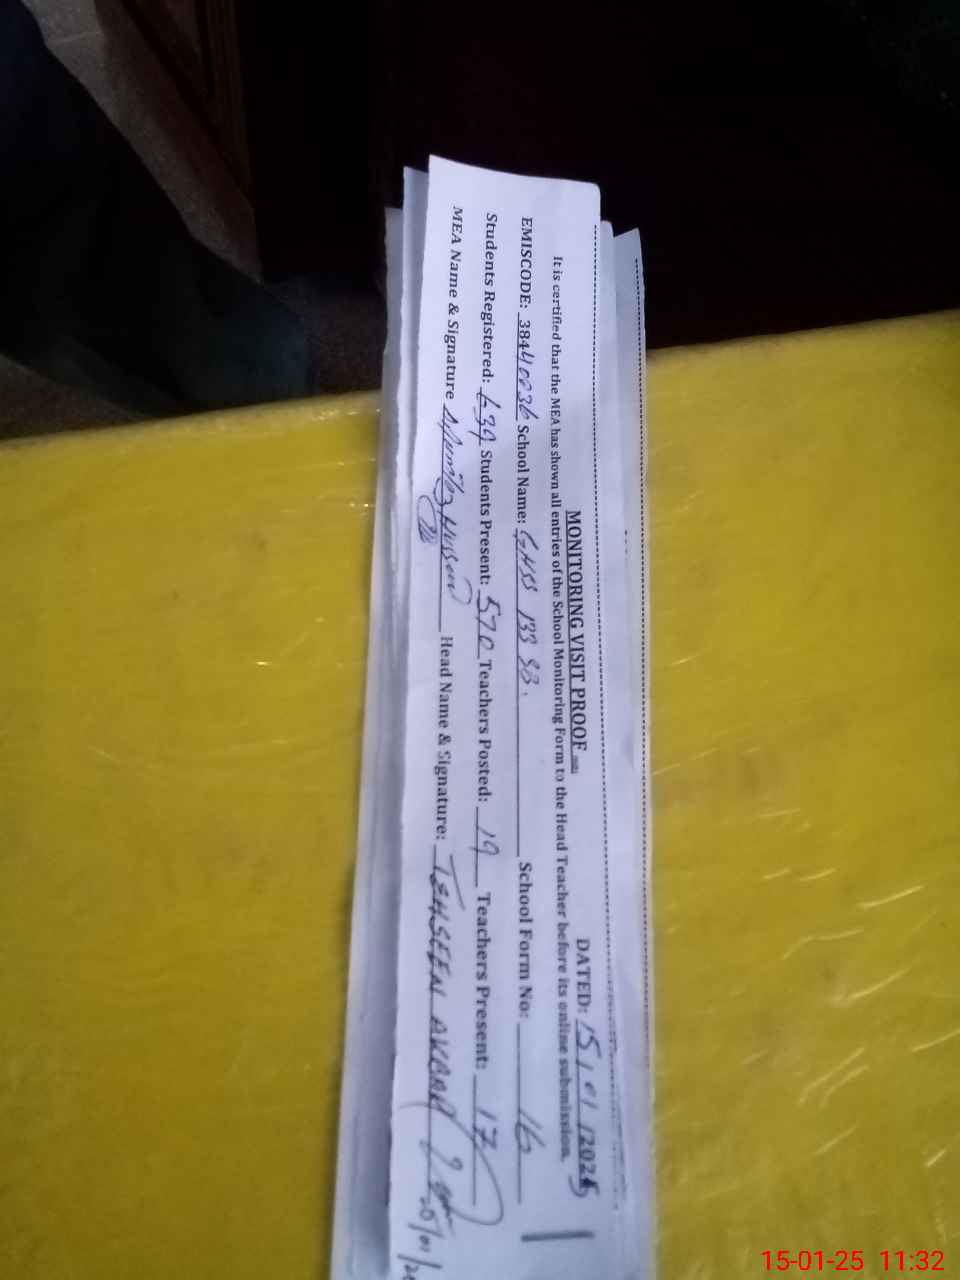 MONITORING VISIT PROOF
DATED: 15/01/2025
It is certified that the MEA has shown all entries of the School Monitoring Form to the Head Teacher before its online submission.
EMISCODE: 38440036 School Name: GHSS 133 SB. School Form No: 16
Students Registered: 639 Students Present: 570 Teachers Posted: 19 Teachers Present: 17
MEA Name & Signature Head Name & Signature: TEHSEEN AKBAR
15-01-25 11:32